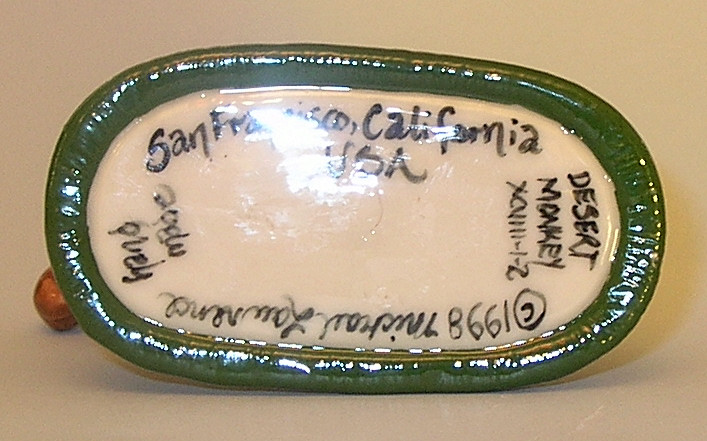 San Francisco, California
USA
DESERT
MONKEY
XCVIII-1-2
©1998 Michael Lawrence